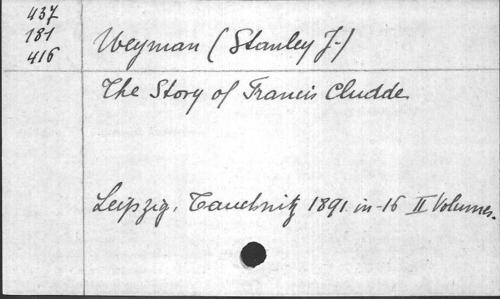 437
181
416
Weyman (Stanley J.)
The Story of Francis Cludde
Leipzig, Tauchnitz 1891 in-16 II Volumes.